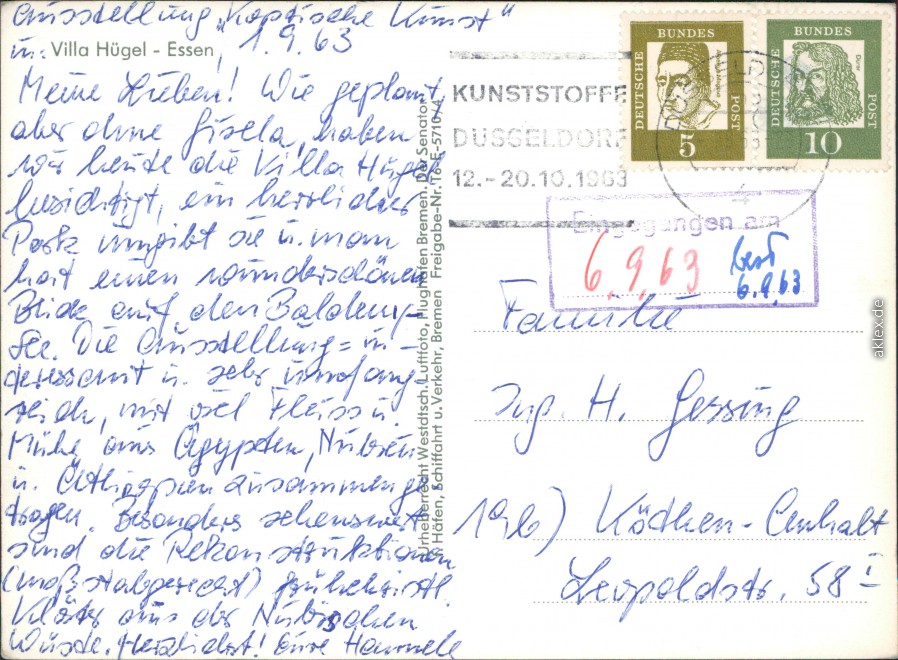 Ausstellung „Koptische Kunst"
in. Villa Hügel - Essen, 1.9.63
Meine Lieben! Wie geplant,
aber ohne Gisela, haben
wir heute die Villa Hügel
besichtigt, ein herrlicher
Park umgibt sie u. man
hat einen wunderschönen
Blick auf den Baldeney-
see. Die Ausstellung = in-
teressant u. sehr umfang-
reich, mit viel Fleiss u.
Mühe aus Ägypten, Nubien
u. Äthiopien zusammenge
tragen. Besonders sehenswert
sind die Rekonstruktionen
(maßstabgerecht) frühchristl.
Klöster aus der Nubischen
Wüste. Herzlichst! Eure Hannele
Urheberrecht Westdtsch. Luftfoto, Flughafen Bremen. Der Senator
f. Häfen, Schiffahrt u. Verkehr, Bremen Freigabe-Nr. T6-E-5710/4
KUNSTSTOFFE
DÜSSELDORF
12.-20.10.1963
DEUTSCHE BUNDES POST
5
DEUTSCHE BUNDES POST
Dürer
10
Eingegangen am
6.9.63
6.9.63
Familie
Ing. H. Gessing
(19b) Köthen-Anhalt
Leopoldstr. 58 I
aklex.de